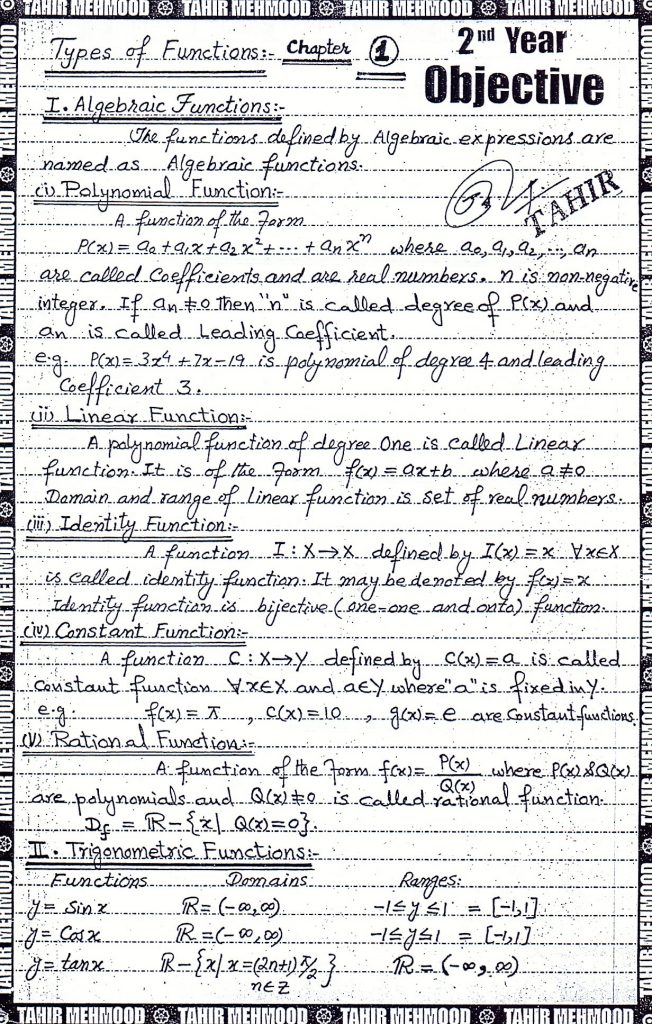 TAHIR MEHMOOD TAHIR MEHMOOD TAHIR MEHMOOD TAHIR MEHMOOD
Types of Functions:- Chapter 1
2nd Year
Objective
I. Algebraic Functions:-
The functions defined by Algebraic expressions are
named as Algebraic functions.
(i) Polynomial Function:-
TAHIR
A function of the Form
P(x) = a₀ + a₁x + a₂x² + --- + aₙxⁿ where a₀, a₁, a₂, ---, aₙ
are called Coefficients and are real numbers. n is non-negative
integer. If aₙ ≠ 0 Then "n" is called degree of P(x) and
aₙ is called Leading Coefficient.
e.g. P(x) = 3x⁴ + 7x - 19 is polynomial of degree 4 and leading
Coefficient 3.
(ii) Linear Function:-
A polynomial function of degree One is called Linear
function. It is of the Form f(x) = ax+b where a ≠ 0
Domain and range of Linear function is set of real numbers.
(iii) Identity Function:-
A function I : X → X defined by I(x) = x ∀ x ∈ X
is called identity function. It may be denoted by f(x) = x
Identity function is bijective (one-one and onto) function.
(iv) Constant Function:-
A function C : X → Y defined by C(x) = a is called
constant function ∀ x ∈ X and a ∈ Y where "a" is fixed in Y.
e.g. f(x) = π , C(x) = 10 , g(x) = e are Constant functions.
(v) Rational Function:-
A function of the Form f(x) = P(x)/Q(x) where P(x) & Q(x)
are polynomials and Q(x) ≠ 0 is called rational function.
D_f = ℝ - {x | Q(x) = 0}.
II. Trigonometric Functions:-
Functions Domains Ranges:
y = Sin x ℝ = (-∞, ∞) -1 ≤ y ≤ 1 = [-1, 1]
y = Cos x ℝ = (-∞, ∞) -1 ≤ y ≤ 1 = [-1, 1]
y = tan x ℝ - {x | x = (2n+1) π/2 } ℝ = (-∞, ∞)
n ∈ Z
TAHIR MEHMOOD TAHIR MEHMOOD TAHIR MEHMOOD TAHIR MEHMOOD